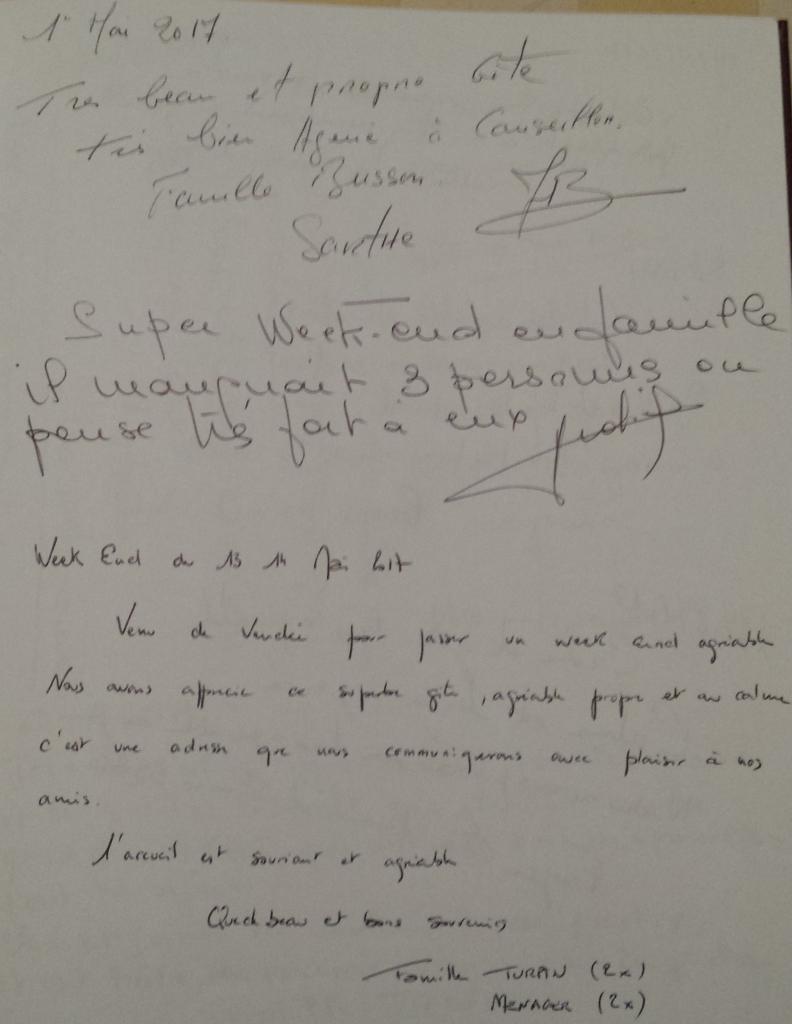 1er Mai 2017
Tres beau et propre Gite
très bien Agencé à Conseiller.
Famille Busson
Sarthe
Super Week-end en famille
il manquait 3 personnes on
pense très fort à eux
Week End du 13 14 Mai
Venu de Vendée pour passer un week end agréable
Nous avons apprécié ce superbe gite, agréable propre et au calme
c'est une adresse que nous communiquerons avec plaisir à nos
amis.
l'accueil est souriant et agréable
Que de beaux et bons souvenirs
Famille TURPIN (2x)
MENAGER (2x)